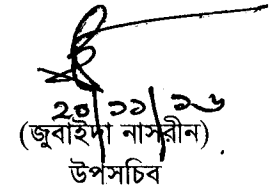 ২০|১১|১৬
(জুবাইদা নাসরীন)
উপসচিব